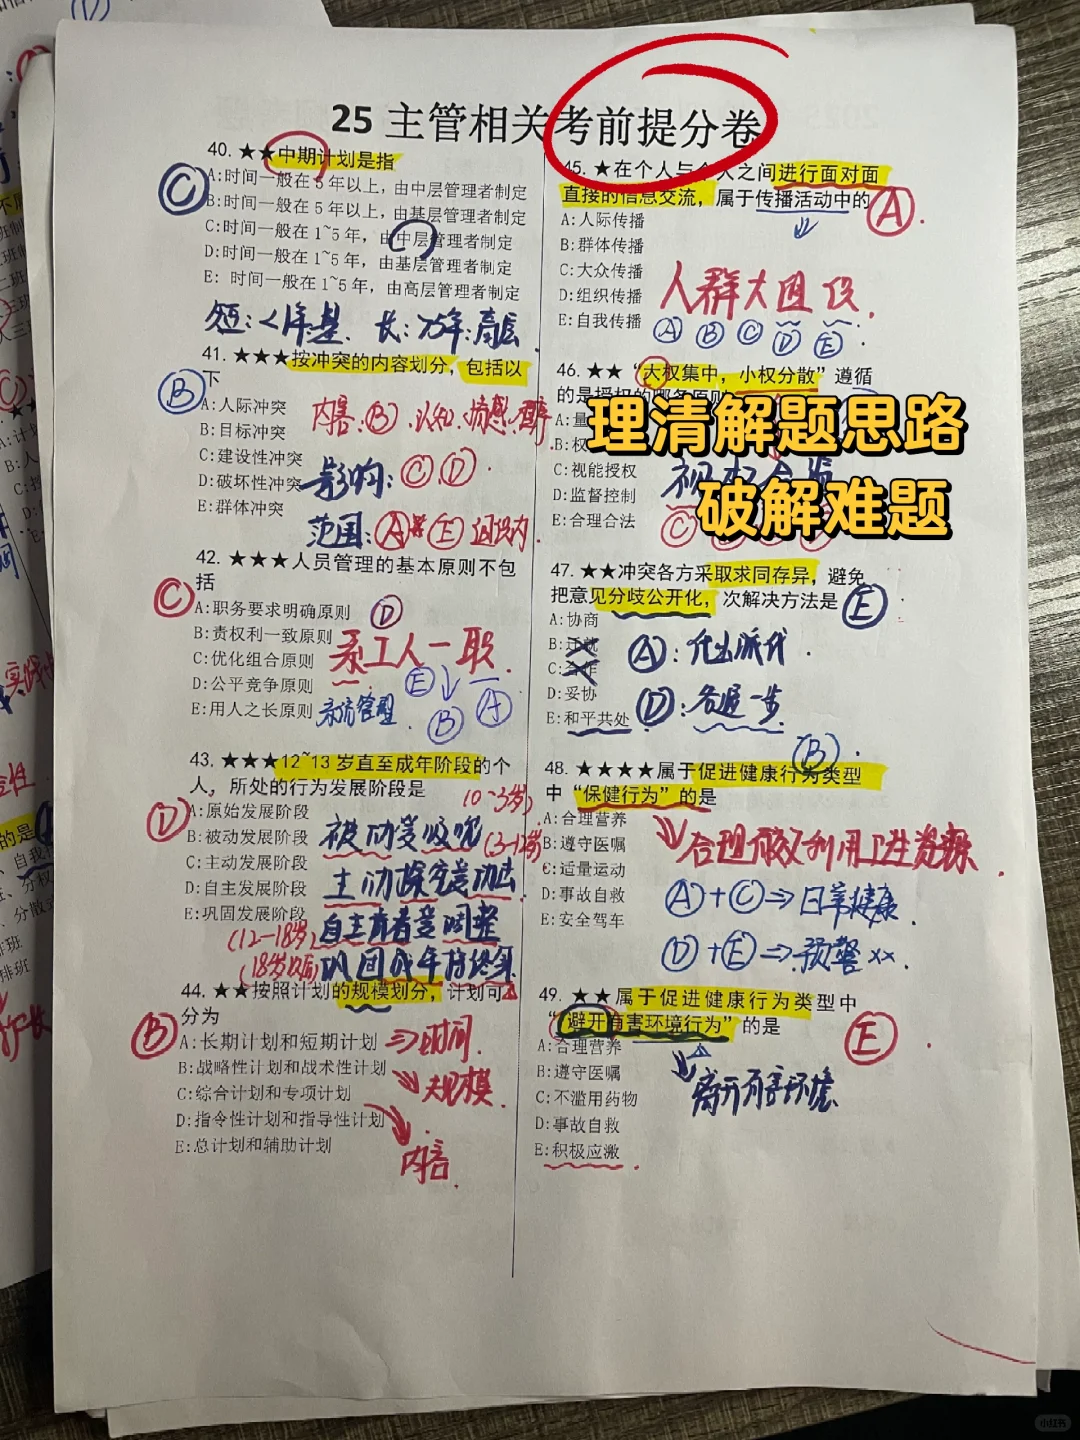 25 主管相关考前提分卷
40. ★★中期计划是指
C
A:时间一般在5年以上，由中层管理者制定
B:时间一般在5年以上，由基层管理者制定
C:时间一般在1~5年，由中层管理者制定
D:时间一般在1~5年，由基层管理者制定
E: 时间一般在1~5年，由高层管理者制定
短:<1年:基. 长:>5年:高层.
41. ★★★按冲突的内容划分，包括以
下
B
A:人际冲突
内容:B.认知.情感.
B:目标冲突
C:建设性冲突
D:破坏性冲突
影响:C D.
E:群体冲突
范围:A E 组织内.
42. ★★★人员管理的基本原则不包
括
C
A:职务要求明确原则 D
B:责权利一致原则
C:优化组合原则
系工人一职.
D:公平竞争原则
E B A
E:用人之长原则
系统管理
43. ★★★12~13岁直至成年阶段的个
人，所处的行为发展阶段是
D
(0-3岁)
A:原始发展阶段
B:被动发展阶段
(3-12岁)
C:主动发展阶段
D:自主发展阶段
E:巩固发展阶段
(12-18岁)
自主 调整
(18岁以后)
巩固成年 终身
44. ★★按照计划的规模划分，计划可
分为
B
A:长期计划和短期计划
⇒时间.
B:战略性计划和战术性计划
C:综合计划和专项计划
规模.
D:指令性计划和指导性计划
E:总计划和辅助计划
内容.
45. ★在个人与个人之间进行面对面
直接的信息交流，属于传播活动中的
A.
A:人际传播
B:群体传播
C:大众传播
D:组织传播
E:自我传播
人群大因设.
A B C D E.
46. ★★“大权集中，小权分散”遵循
的是授权的哪条原则
A:量
B:权
C:视能授权
D:监督控制
E:合理合法
C
理清解题思路
破解难题
47. ★★冲突各方采取求同存异，避免
把意见分歧公开化，次解决方法是
E
A:协商
B:迁就
C:合作
A:
D:妥协
D:各退一步
E:和平共处
B.
48. ★★★★属于促进健康行为类型
中“保健行为”的是
A:合理营养
B:遵守医嘱
合理 利用卫生资源.
C:适量运动
D:事故自救
A+C⇒日常健康.
E:安全驾车
D+E⇒预警××.
49. ★★属于促进健康行为类型中
“避开有害环境行为”的是
E.
A:合理营养
B:遵守医嘱
离开有害环境.
C:不滥用药物
D:事故自救
E:积极应激
小红书